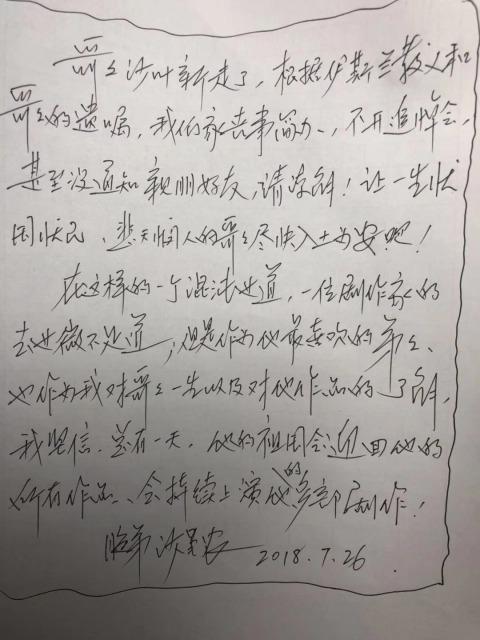 哥哥沙叶新走了，根据伊斯兰教义和
哥哥的遗嘱，我们家丧事简办，不开追悼会，
甚至没通知亲朋好友，请谅解！让一生忧
国忧民、悲天悯人的哥哥尽快入土为安吧！
在这样的一个混沌世道，一位剧作家的
去世微不足道；但是作为他最喜欢的弟弟、
也作为我对哥哥一生以及对他作品的了解，
我坚信，总有一天，他的祖国会迎回他的
所有作品、会持续上演他的多部剧作！
胞弟 沙 农 2018.7.26